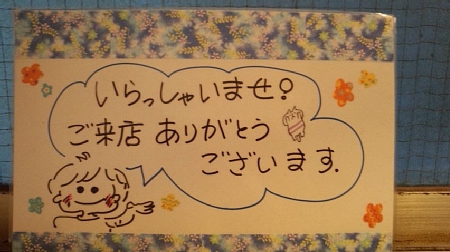 いらっしゃいませ!
ご来店 ありがとう
ございます.